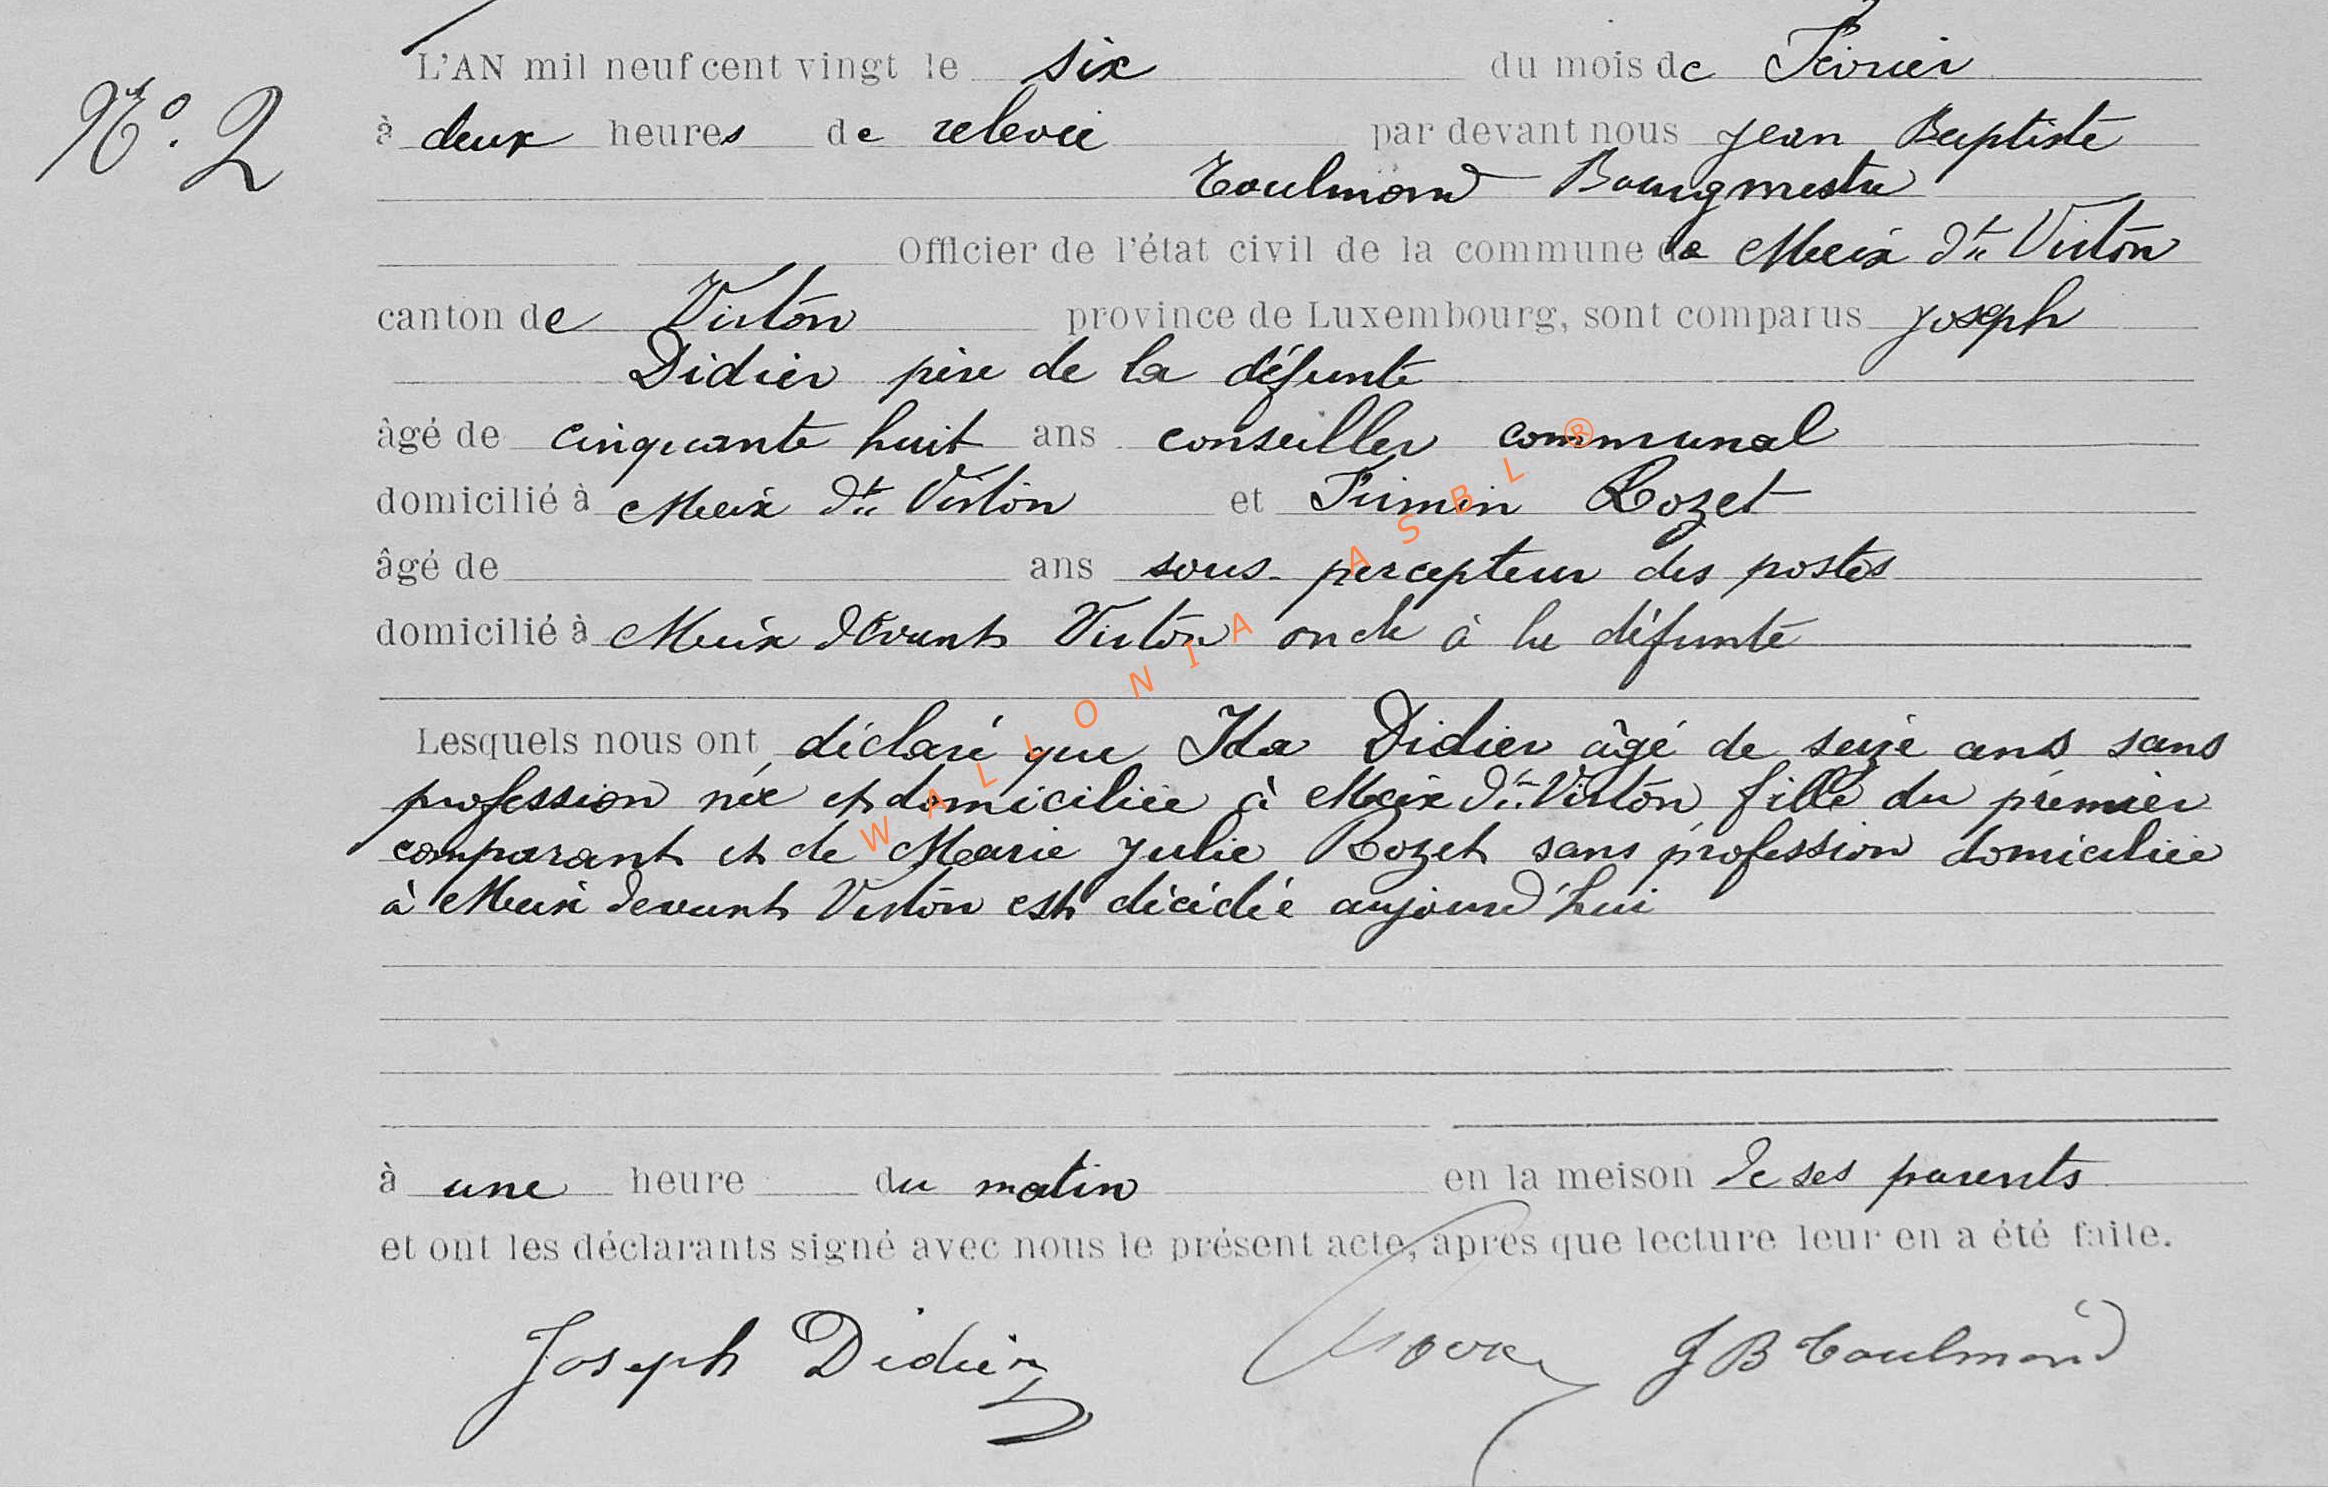 N° 2
L'AN mil neuf cent vingt le six du mois de Février
à deux heures de relevée par devant nous Jean Baptiste
Toulmond Bourgmestre
Officier de l'état civil de la commune de Meix dt Virton
canton de Virton province de Luxembourg, sont comparus Joseph
Didier père de la défunte
âgé de cinquante huit ans conseiller communal
domicilié à Meix dt Virton et Firmin Rozet
âgé de ans sous-percepteur des postes
domicilié à Meix devant Virton oncle à la défunte
Lesquels nous ont déclaré que Ida Didier âgé de seize ans sans
profession née et domiciliée à Meix dt Virton fille du premier
comparant et de Marie Julie Rozet sans profession domiciliée
à Meix devant Virton est décédée aujourd'hui
à une heure du matin en la meison de ses parents
et ont les déclarants signé avec nous le présent acte, après que lecture leur en a été faite.
Joseph Didier JB Toulmond
WALLONIA ASBL ®